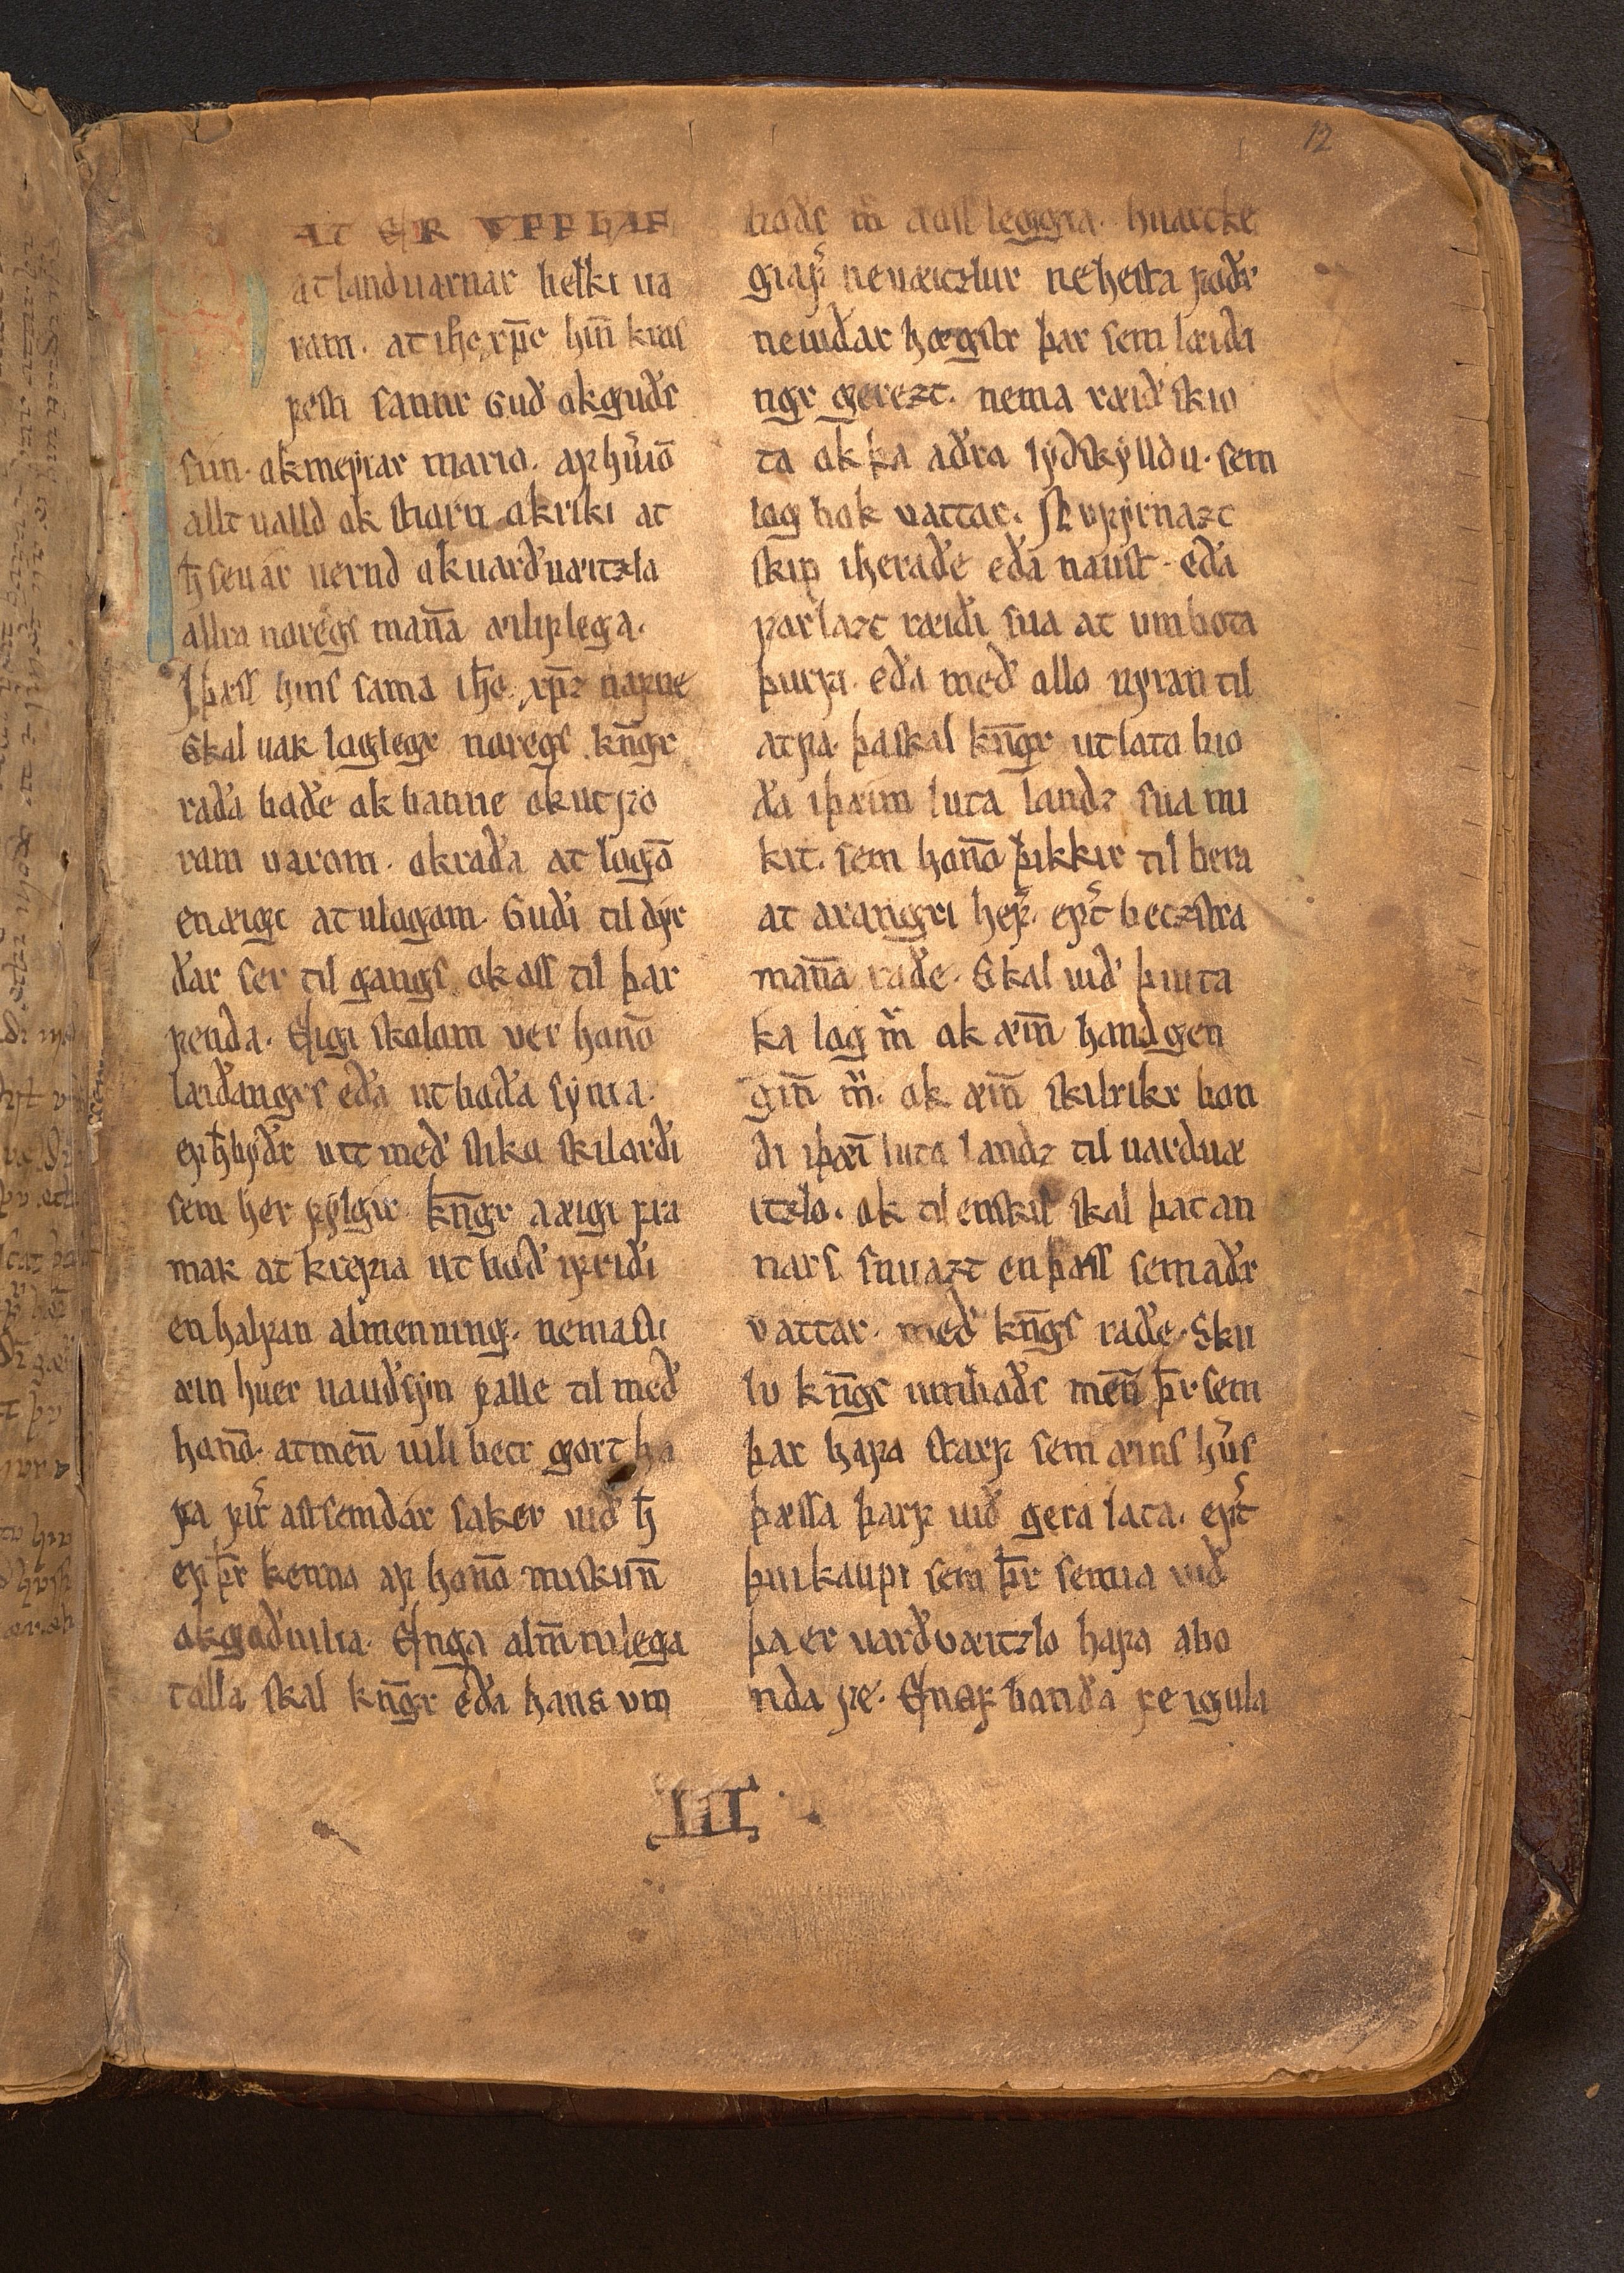 12
AT ER VPPHAF
at landuarnar belki ua
rarn. at ihc xp̄c hin̄ kros
festi sannr Guð ok guðs
sun. ok meyiar mario. af hu̓iō
allt ualld ok stiorn ok riki at
ħ se uár uernd ok uarðuæitzla
allra noregs man̄a æiliflega.
J þæss hins sama ihū xp̄z nafne
Skal uar loglegr noregs kn̄gr
raða boðe ok banne ok utfo
rum uarom. ok raða at logō
en æigi at ulogom. Guði til dyr
ðar ser til gangs ok oss til þar
fenda. Eigi skolom ver honō
læiðangrs eða ut boða synia.
ef ħ byðr utt með slika skilorði
sem her fylgir. kn̄gr a æigi fra
mar at krefia ut boð i friði
en halfan almenning. nema su
æin huer nauðsyn falle til með
honō. at men̄ uili betr gort ha
fa fir̓ astsemdar saker uið ħ
ef þr̄ kenna af honō miskun̄
ok goðuilia. Enga alm̄nilega
talla skal kn̄gr eða hans vm
boðs m̄ a oss leggia. huarcke
giaf̓ ne uæitzlur ne hesta foðr
ne uiðar hogstr þar sem læiða
ngr gerezt. nema ræið skio
ta ok þa aðra lyðskylldu. sem
log bok vattar. Nv fyrnazt
skip i heraðe eða naust. eða
farlazt ræiði sua at umbota
þurfi. eða með allo nyian til
at fa. þa skal kn̄gr ut lata bio
ða i þæim luta landz sua mi
kit. sem honō þikkir til bera
at arangri hef̓. eft̓ beztra
man̄a raðe. Skal uið þui ta
ka log m̄ ok æin̄ handgen
gin̄ m̄. ok æin̄ skilrikr bon
di i þæī luta landz til uarduæ
itzlo. ok til enskis skal þat an
nars snuazt en þæss sem aðr
vattar. með kn̄gs raðe. Sku
lu kn̄gs umboðs men̄ þr̄ sem
þar hafa starf sem æins hu̓s
þæssa þarf uið gera lata. eft̓
þui kaupi sem þr̄ semia uið
þa er uarðvæitzlo hafa a bo
nda fe. En ef bonda fe i gula
III